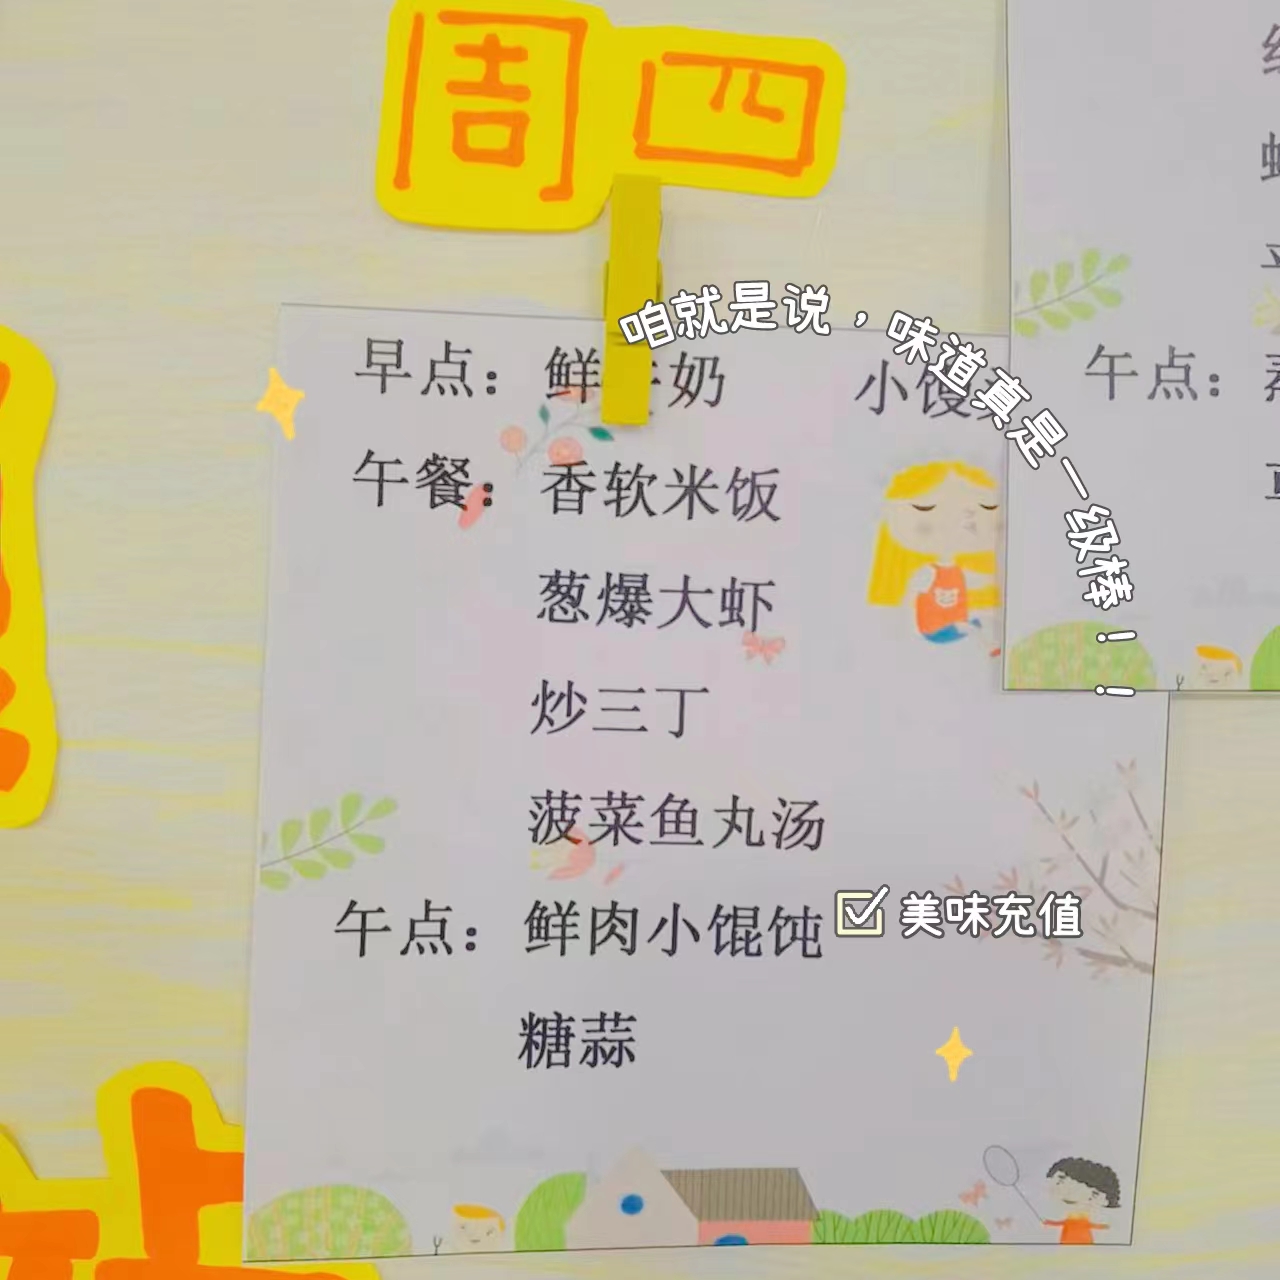 周四
咱就是说，味道真是一级棒！！
早点：鲜牛奶 小馒
午餐：香软米饭
葱爆大虾
炒三丁
菠菜鱼丸汤
午点：鲜肉小馄饨
美味充值
糖蒜
午点：